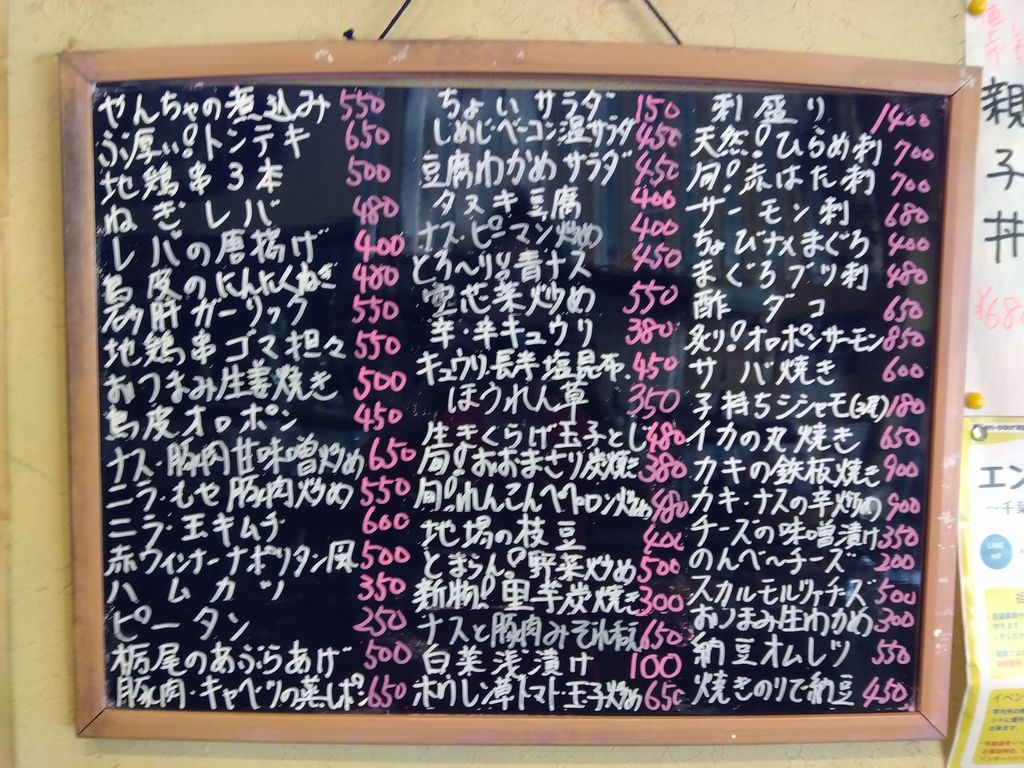 やんちゃの煮込み 550
ぶ厚い!トンテキ 650
地鶏串3本 500
ねぎレバ 480
レバの唐揚げ 400
鳥皮のにんたくねぎ 480
砂肝ガーリック 550
地鶏串ゴマ担々 550
おつまみ生姜焼き 500
鳥皮オロポン 450
ナス・豚肉甘味噌炒め 650
ニラ・もや豚肉炒め 550
ニラ・玉キムチ 600
赤ウィンナーナポリタン風 500
ハムカツ 350
ピータン 250
栃尾のあぶらあげ 500
豚肉・キャベツの蒸しポン 650
ちょいサラダ 150
しめじベーコン温サラダ 450
豆腐わかめサラダ 450
タヌキ豆腐 400
ナス・ピーマン炒め 400
とろ〜りり青ナス 450
空芯菜炒め 550
辛・辛キュウリ 380
キュウリ・長芋塩昆布 450
ほうれん草 350
生きくらげ玉子とじ 480
旬!おおまさり炭焼き 380
旬!れんこんペペロン炒め 480
地場の枝豆 400
とまらん!野菜炒め 500
新物!里芋炭焼き 300
ナスと豚肉みぞれ和え 650
白菜浅漬け 100
ホウレン草トマト・玉子炒め 650
刺盛り 1400
天然!ひらめ刺 700
旬!赤はた刺 700
サーモン刺 680
ちょびナメまぐろ 400
まぐろブツ刺 480
酢ダコ 650
炙り!オロポンサーモン 850
サバ焼き 600
子持ちシシャモ 180
イカの丸焼き 650
カキの鉄板焼き 900
カキ・ナスの辛炒め 900
チーズの味噌漬け 350
のんべ〜チーズ 200
スカルモルツァチーズ 500
おつまみ生わかめ 300
納豆オムレツ 550
焼きのりで納豆 450
親子丼
¥680
エン
〜千葉
LINE
イベン